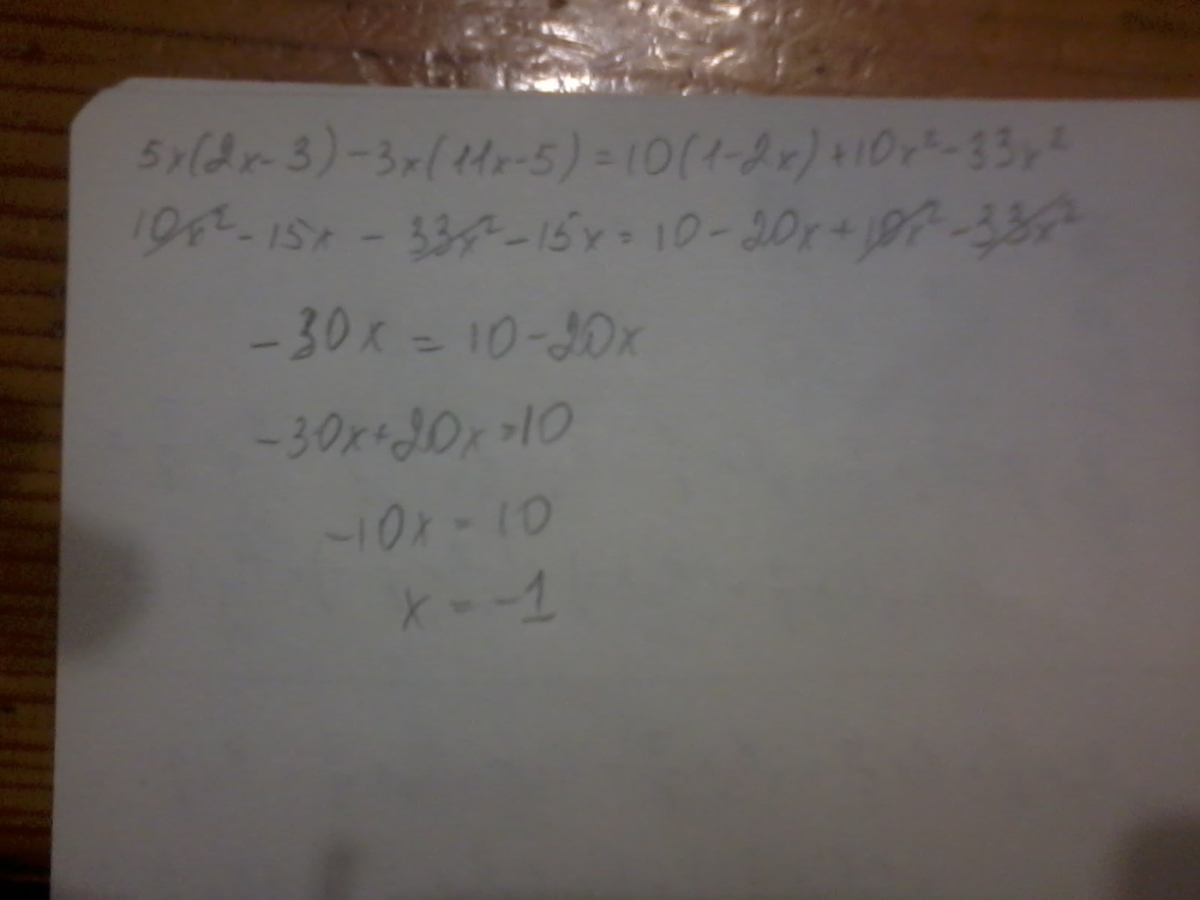 5x(2x-3)-3x(11x-5)=10(1-2x)+10x²-33x²
10x²-15x-33x²-15x=10-20x+10x²-33x²
-30x=10-20x
-30x+20x=10
-10x=10
x=-1